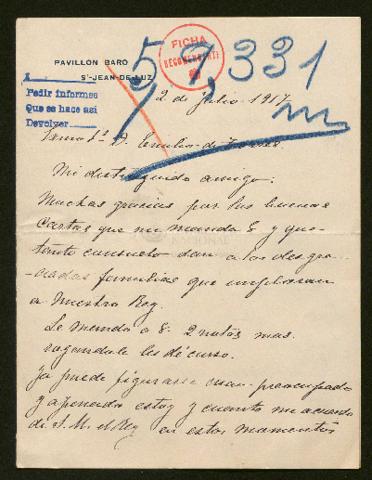 PAVILLON BARO
Sⁿ-JEAN-DE-LUZ
FICHA
57,331
A
Pedir informes
Que se hace así
Devolver
2 de julio 1917
D. Emilio de Torres
Mi distinguido amigo:
Muchas gracias por sus buenas
cartas que me manda V. y que
tanto consuelo dan a las desgra-
ciadas familias que imploran
a Nuestro Rey.
Le mando a V. 2 notas mas
rogandole les dé curso.
Ya puede figurarse cuan preocupado
y apenado estoy y cuanto me acuerdo
de S. M. el Rey en estos momentos